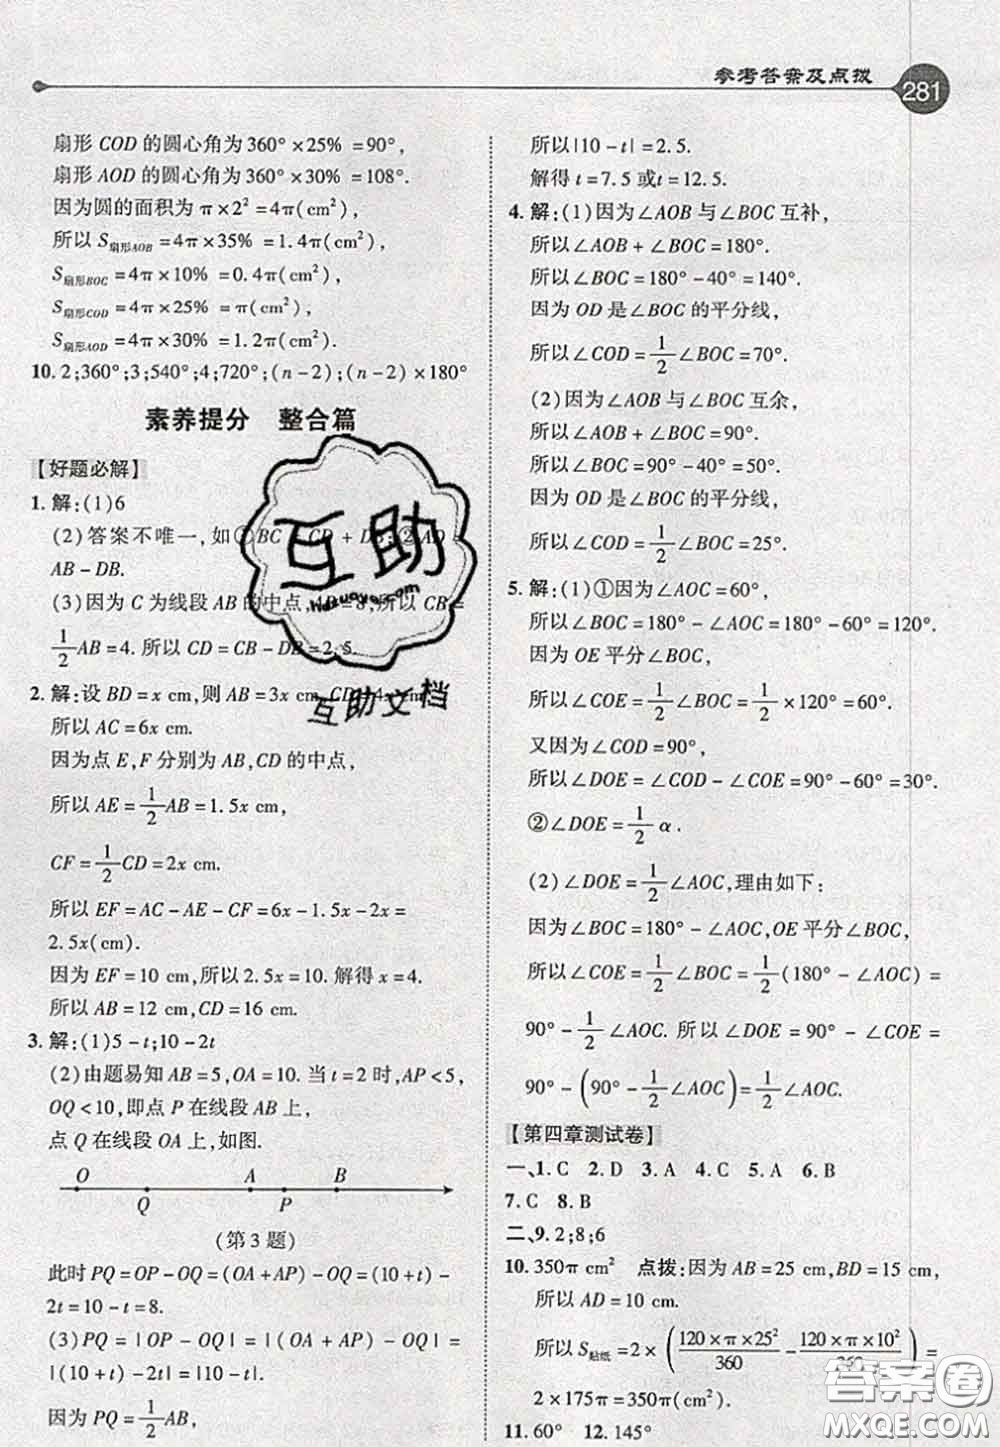 参考答案及点拨
281
扇形COD的圆心角为360°×25% =90°,
扇形AOD的圆心角为360°×30% =108°.
因为圆的面积为π×2²=4π(cm²),
所以S扇形AOB=4π×35% =1.4π(cm²),
S扇形BOC=4π×10% =0.4π(cm²),
S扇形COD=4π×25% =π(cm²),
S扇形AOD=4π×30% =1.2π(cm²).
10. 2;360°;3;540°;4;720°;(n-2);(n-2)×180°
素养提分 整合篇
【好题必解】
1. 解:(1)6
(2)答案不唯一,如①BC=CD+DB;②AD=
AB-DB.
(3)因为C为线段AB的中点,AB=8,所以CB=
1/2AB=4.所以CD=CB-DB=2.5.
2. 解:设BD=x cm,则AB=3x cm,CD=4x cm.
所以AC=6x cm.
因为点E,F分别为AB,CD的中点,
所以AE=1/2AB=1.5x cm,
CF=1/2CD=2x cm.
所以EF=AC-AE-CF=6x-1.5x-2x=
2.5x(cm).
因为EF=10 cm,所以2.5x=10.解得x=4.
所以AB=12 cm,CD=16 cm.
3. 解:(1)5-t;10-2t
(2)由题易知AB=5,OA=10.当t=2时,AP<5,
OQ<10,即点P在线段AB上,
点Q在线段OA上,如图.
O A B
Q P
(第3题)
此时PQ=OP-OQ=(OA+AP)-OQ=(10+t)-
2t=10-t=8.
(3)PQ=|OP-OQ|=|(OA+AP)-OQ|=
|(10+t)-2t|=|10-t|.
因为PQ=1/2AB,
所以|10-t|=2.5.
解得t=7.5或t=12.5.
4. 解:(1)因为∠AOB与∠BOC互补,
所以∠AOB+∠BOC=180°.
所以∠BOC=180°-40°=140°.
因为OD是∠BOC的平分线,
所以∠COD=1/2∠BOC=70°.
(2)因为∠AOB与∠BOC互余,
所以∠AOB+∠BOC=90°.
所以∠BOC=90°-40°=50°.
因为OD是∠BOC的平分线,
所以∠COD=1/2∠BOC=25°.
5. 解:(1)①因为∠AOC=60°,
所以∠BOC=180°-∠AOC=180°-60°=120°.
因为OE平分∠BOC,
所以∠COE=1/2∠BOC=1/2×120°=60°.
又因为∠COD=90°,
所以∠DOE=∠COD-∠COE=90°-60°=30°.
②∠DOE=1/2α.
(2)∠DOE=1/2∠AOC,理由如下:
因为∠BOC=180°-∠AOC,OE平分∠BOC,
所以∠COE=1/2∠BOC=1/2(180°-∠AOC)=
90°-1/2∠AOC.所以∠DOE=90°-∠COE=
90°-(90°-1/2∠AOC)=1/2∠AOC.
【第四章测试卷】
一、1. C 2. D 3. A 4. C 5. A 6. B
7. C 8. B
二、9. 2;8;6
10. 350π cm² 点拨:因为AB=25 cm,BD=15 cm,
所以AD=10 cm.
所以S贴纸=2×(120×π×25²/360-120×π×10²/360)=
2×175π=350π(cm²).
11. 60° 12. 145°
互助
Hdzuoye.com
互助文档
答案圈
MXQE.COM